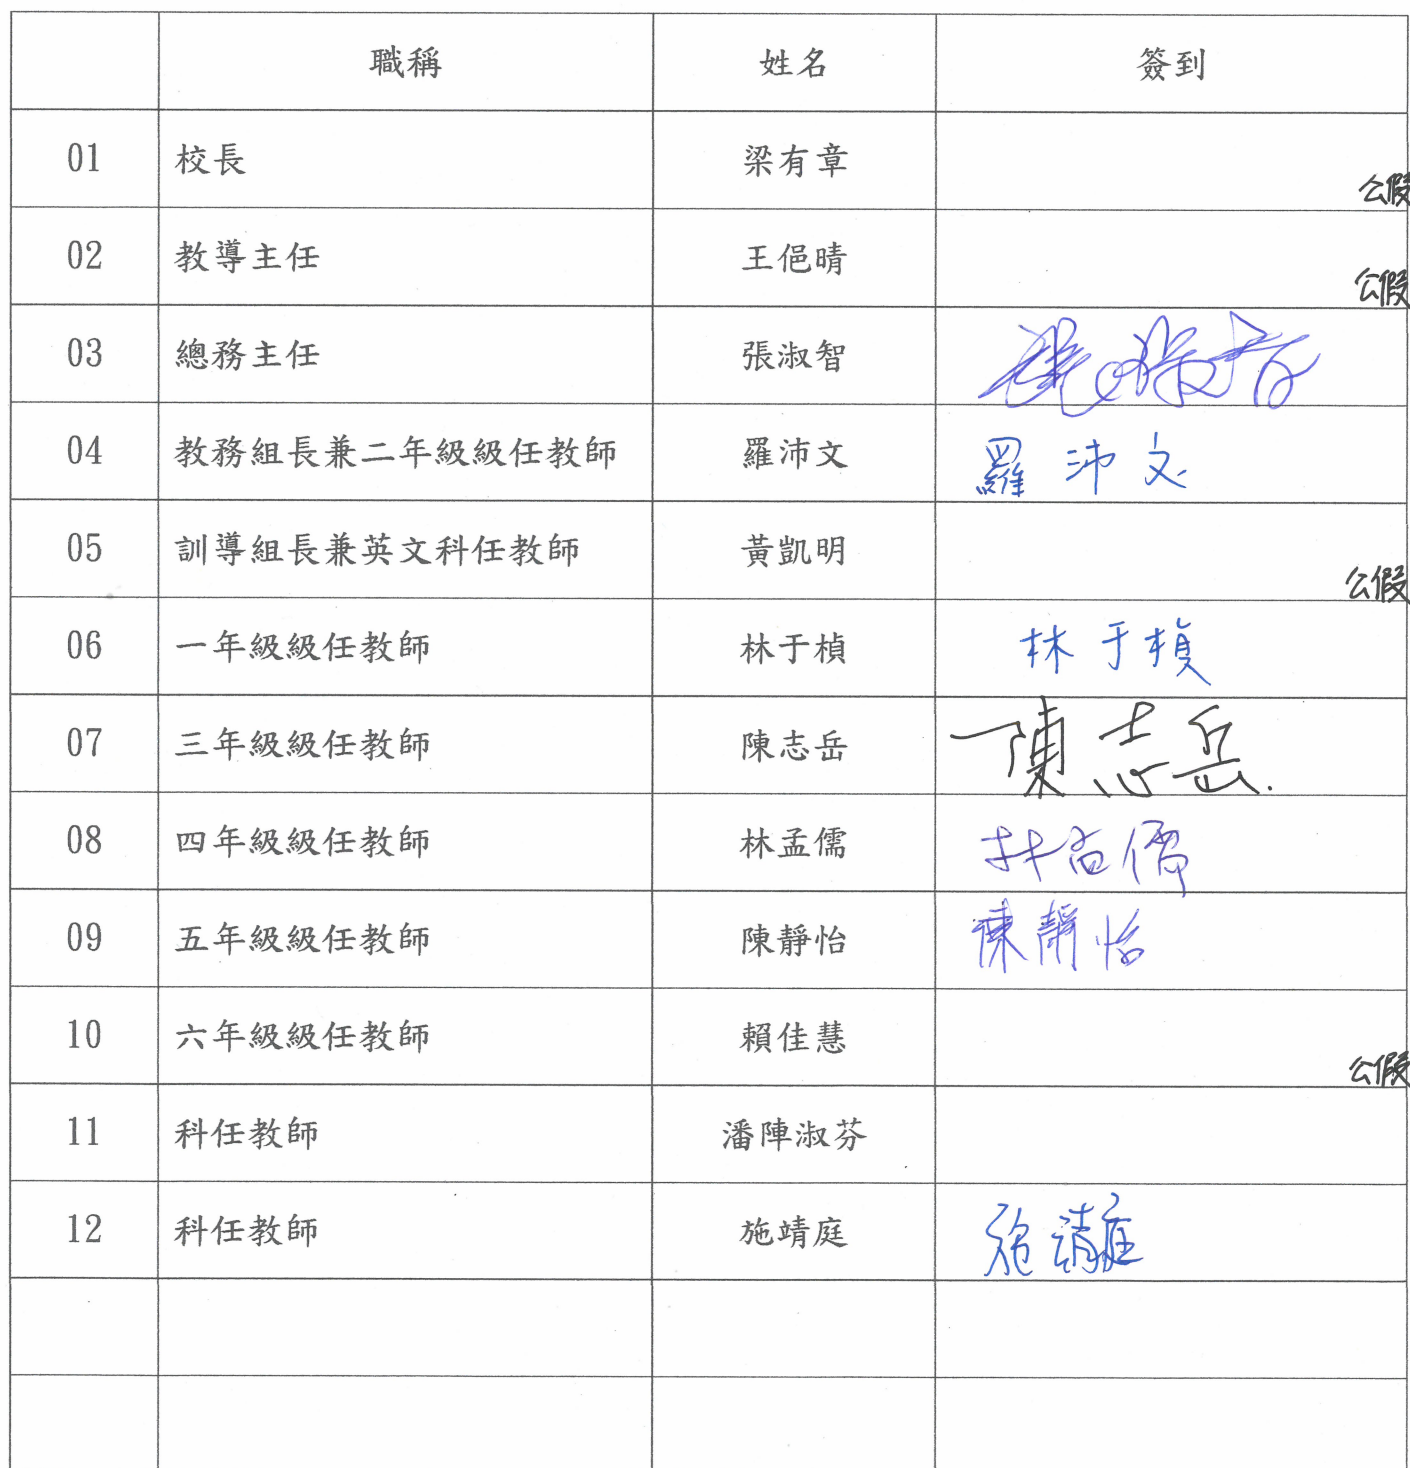 職稱 姓名 簽到
01 校長 梁有章 公假
02 教導主任 王俋晴 公假
03 總務主任 張淑智 張淑智
04 教務組長兼二年級級任教師 羅沛文 羅沛文
05 訓導組長兼英文科任教師 黃凱明 公假
06 一年級級任教師 林于楨 林于楨
07 三年級級任教師 陳志岳 陳志岳
08 四年級級任教師 林孟儒 林孟儒
09 五年級級任教師 陳靜怡 陳靜怡
10 六年級級任教師 賴佳慧 公假
11 科任教師 潘陣淑芬
12 科任教師 施靖庭 施靖庭